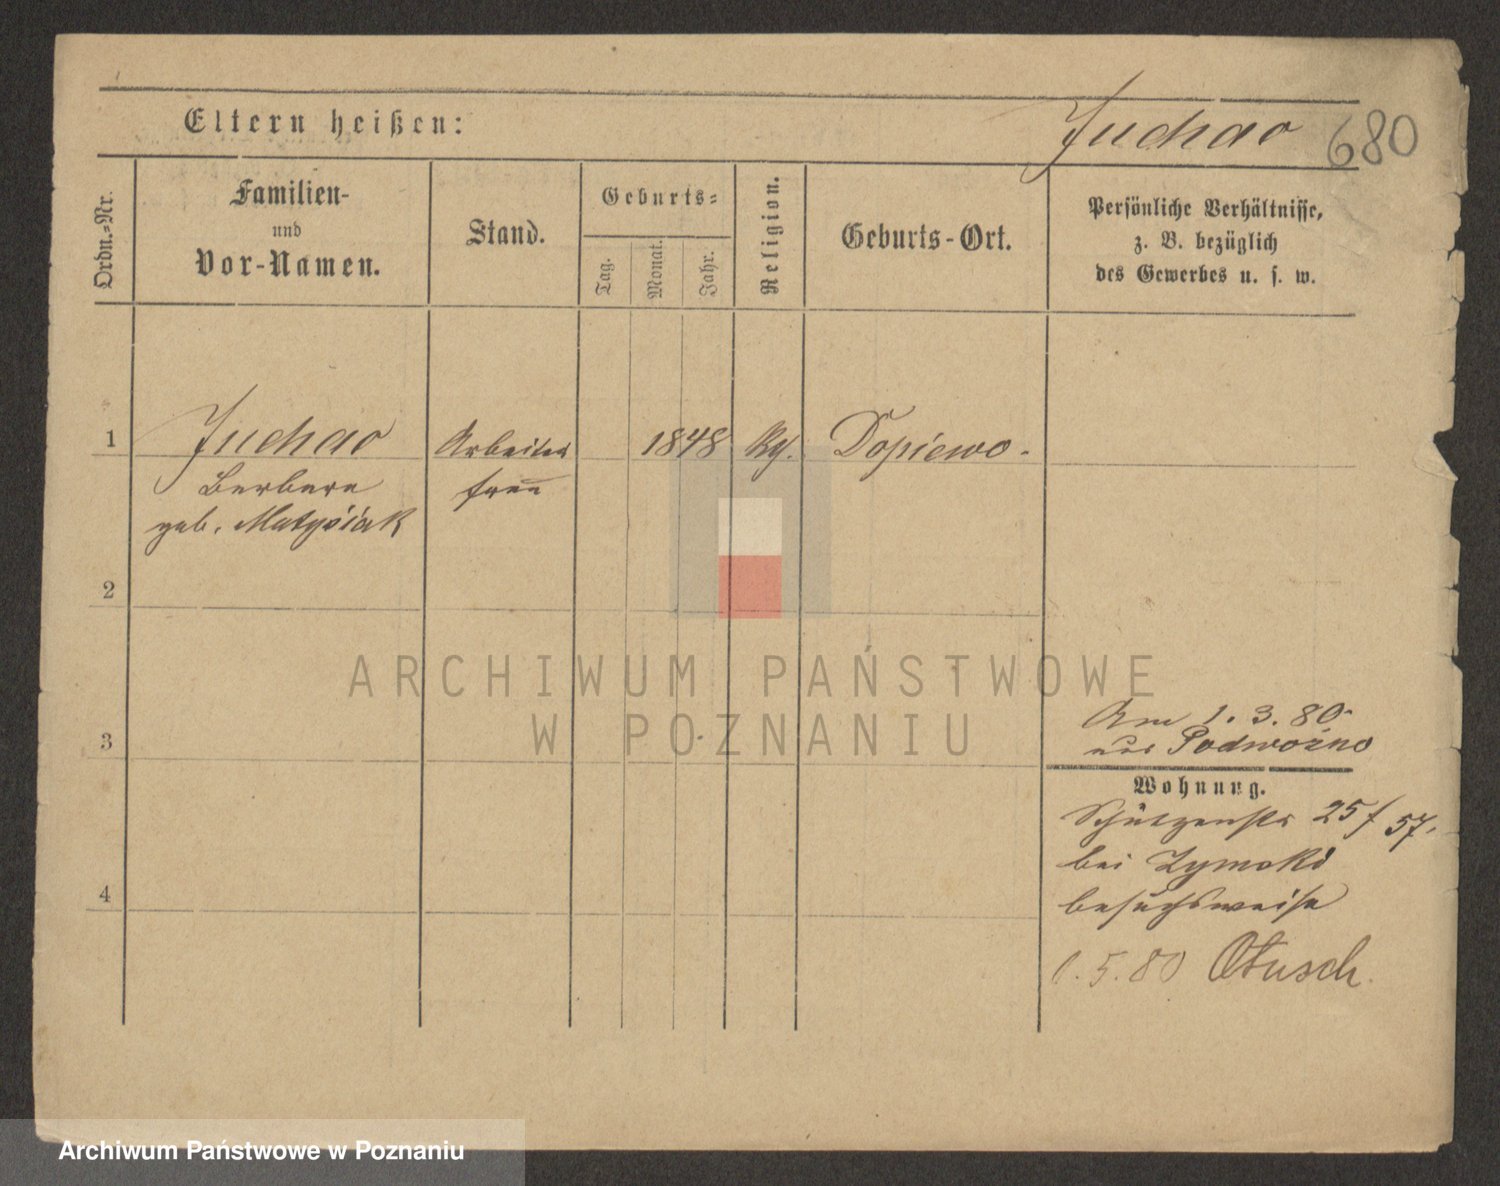 Eltern heißen:
Juchao 680
Ordn.-Nr.
Familien-
und
Vor-Namen.
Stand.
Geburts-
Tag.
Monat.
Jahr.
Religion.
Geburts-Ort.
Persönliche Verhältnisse,
z. B. bezüglich
des Gewerbes u. s. w.
1 Juchao Arbeiter 1848 Dopiewo.
Barbara frau
geb. Matysiak
2
3
4
Am 1. 3. 80
aus
Wohnung.
Schützenstr 25/57.
bei
besuchsweise
1.5.80 Otusch
ARCHIWUM PAŃSTWOWE
W POZNANIU
Archiwum Państwowe w Poznaniu